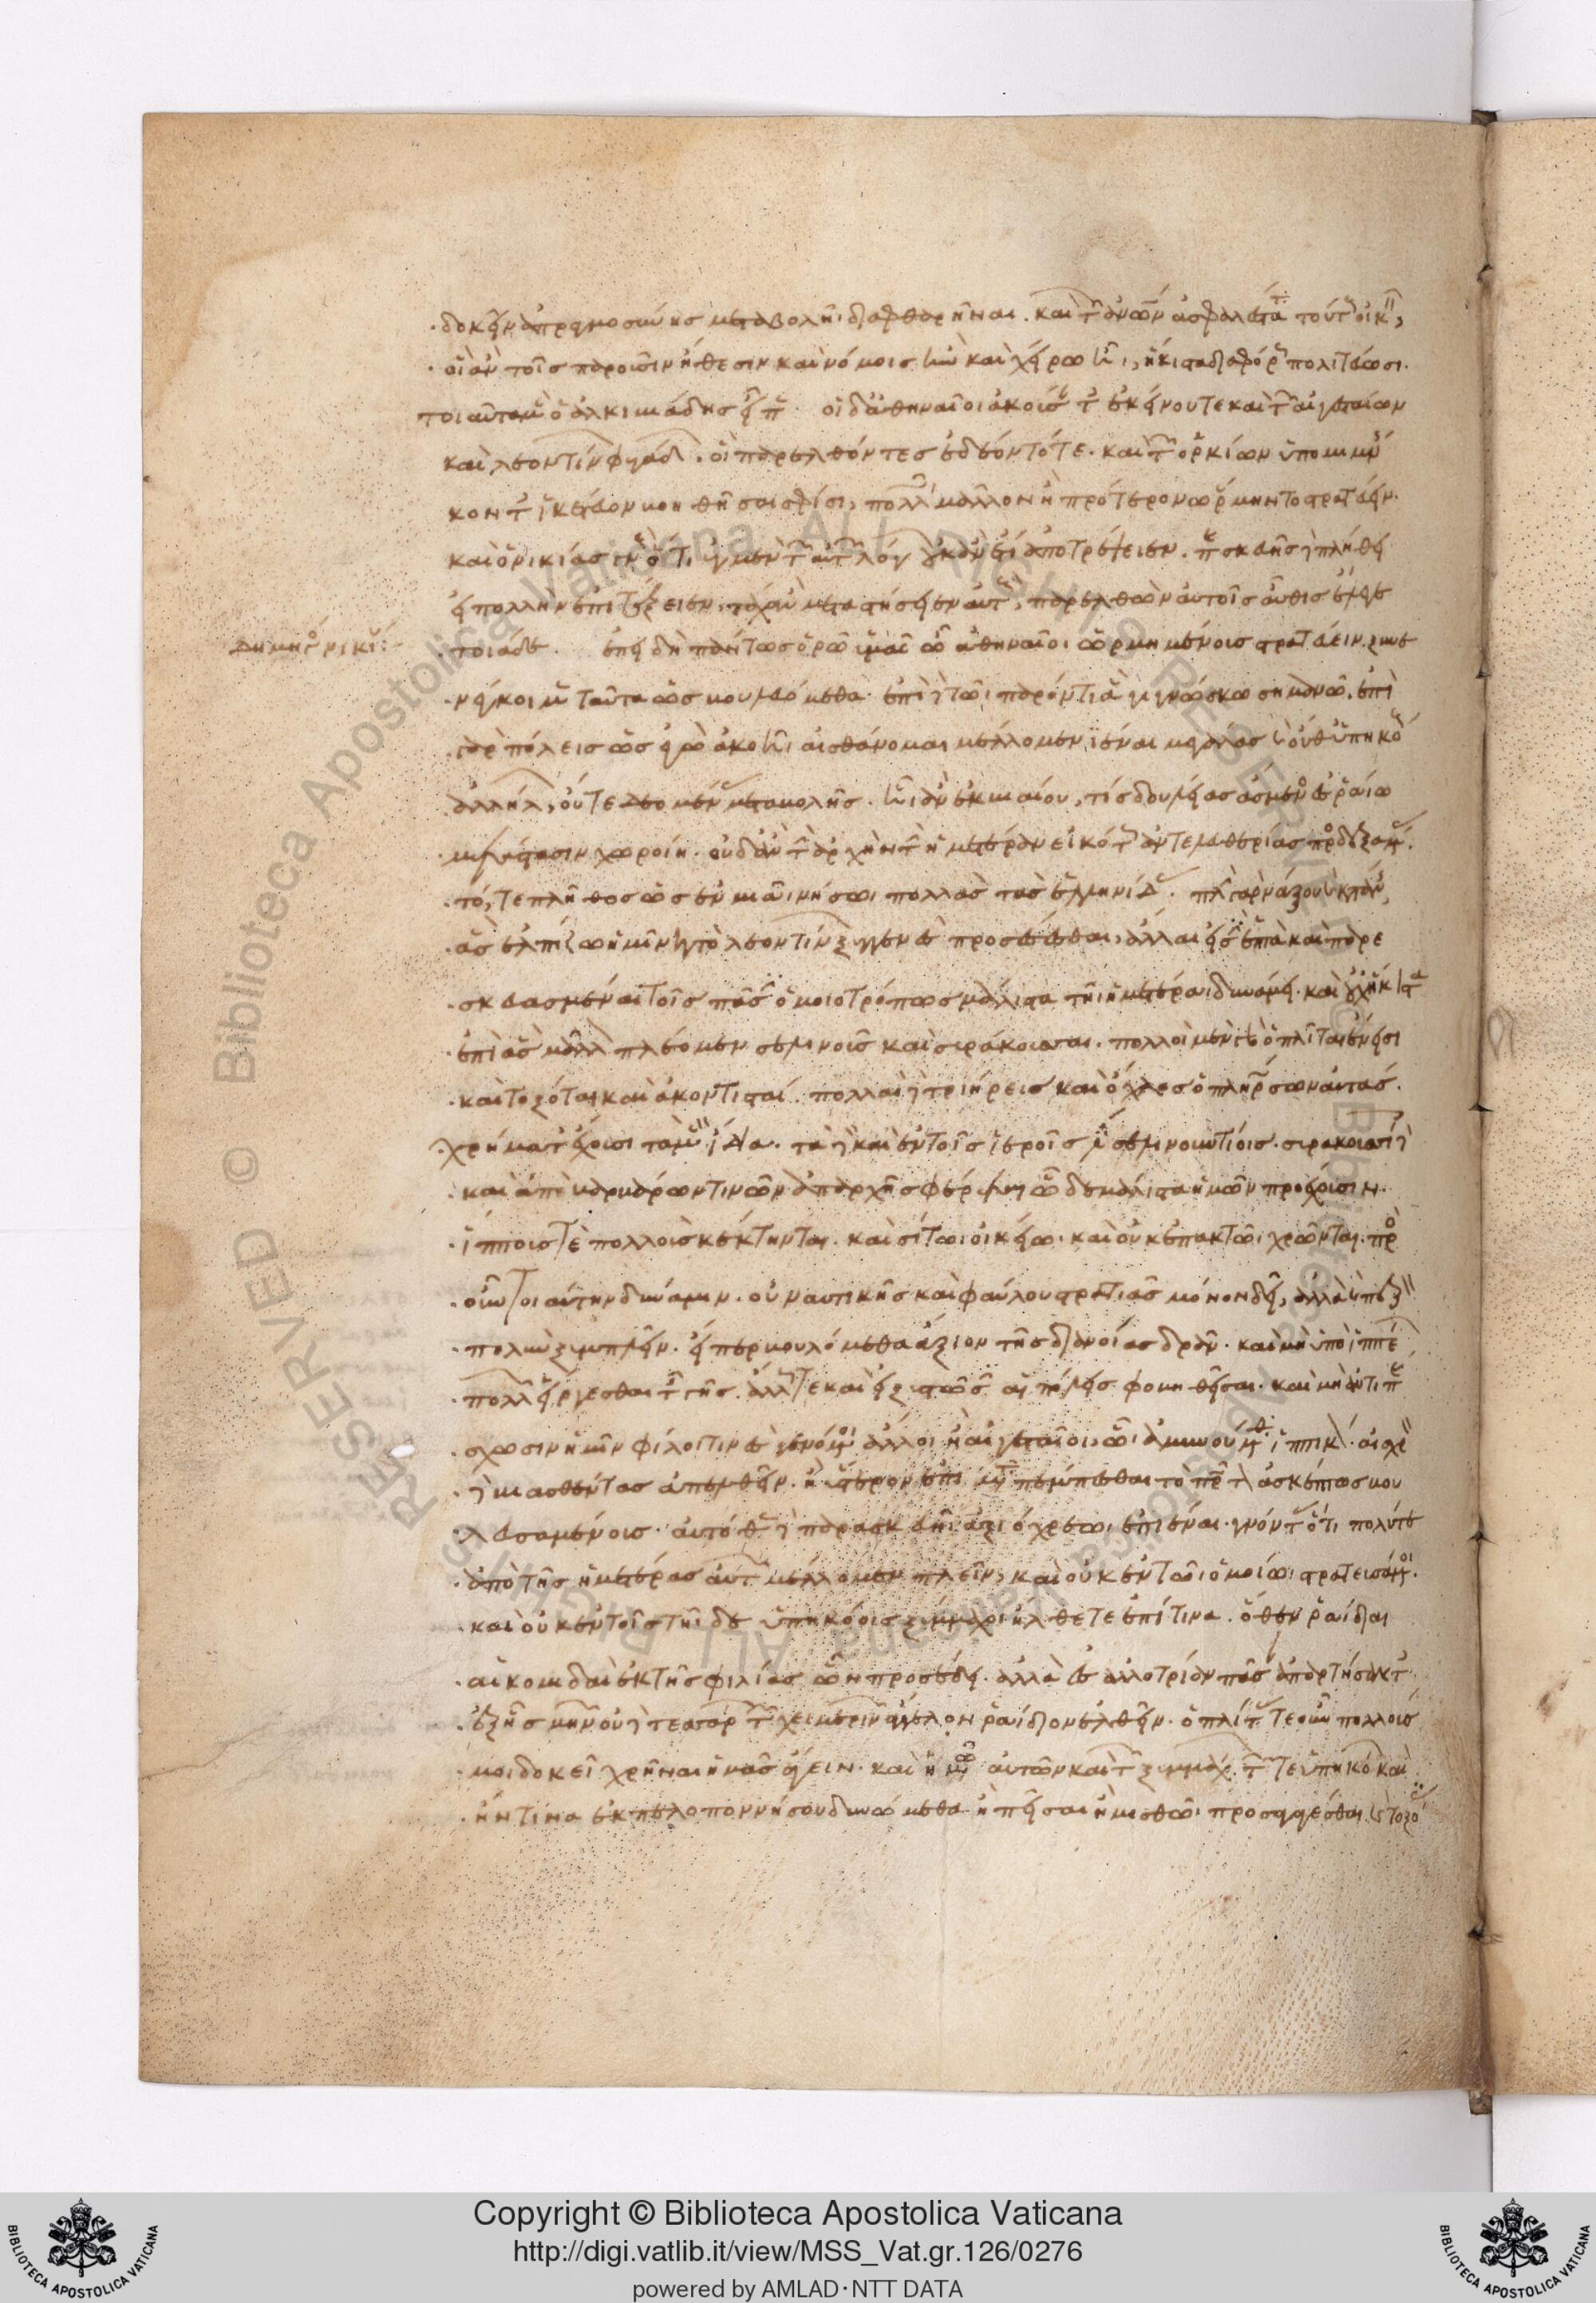 δοκεῖν ἀπραγμοσύνης μεταβολῆι διαφθαρῆναι. καὶ τῶν ἀνθρώπων ἀσφαλέστατα τούτους οἰκεῖν,
οἳ ἂν τοῖς παροῦσιν ἤθεσιν καὶ νόμοις ἢν καὶ χείρω ἦι, ἥκιστα διαφόρως πολιτεύωσι.
τοιαῦτα μὲν ὁ ἀλκιβιάδης εἶπεν. οἱ δ' ἀθηναῖοι ἀκούσαντες ἐκείνου τε καὶ τῶν αἰγεσταίων
καὶ λεοντίνων φυγάδων. οἳ παρελθόντες ἐδέοντό τε. καὶ τῶν ὁρκίων ὑπομιμνήσ
κοντες ἱκέτευον βοηθῆσαι σφίσι, πολλῶι μᾶλλον ἢ πρότερον ὥρμηντο στρατεύειν.
καὶ ὁ νικίας γνοὺς ὅτι ἀπὸ μὲν τῶν αὐτῶν λόγων οὐκ ἂν ἔτι ἀποτρέψειεν. παρασκευῆς δὲ πλήθει
εἰ πολλὴν ἐπιτάξειεν, τάχ' ἂν μεταστήσειεν αὐτοὺς, παρελθὼν αὐτοῖς αὖθις ἔλεγε
δημηγορία νικίου
τοιάδε. ἐπειδὴ πάντως ὁρῶ ὑμᾶς ὦ ἀθηναῖοι ὡρμημένους στρατεύειν. ξυνε
νέγκοι μὲν ταῦτα ὡς βουλόμεθα. ἐπὶ δὲ τῶι παρόντι ἃ γιγνώσκω σημανῶ. ἐπὶ
γὰρ πόλεις ὡς ἐγὼ ἀκοῆι αἰσθάνομαι μέλλομεν ἰέναι μεγάλας καὶ οὔθ' ὑπηκόους
ἀλλήλων, οὔτε δεομένας μεταβολῆς. ἧι ἂν ἐκ βιαίου, τίς δουλείας ἄσμενος ἐς ῥαίω
μετάστασιν χωροίη. οὐδ' ἂν τὴν ἀρχὴν τὴν ἡμετέραν εἰκότως ἀντ' ἐλευθερίας προσδεξαμένας.
τό, τε πλῆθος ὡς ἐν μιᾶι νήσωι πολλὰς τὰς ἑλληνίδας. πλὴν γὰρ νάξου καὶ κατάνης,
ἃς ἐλπίζω ἡμῖν κατὰ τὸ λεοντίνων ξυγγενὲς προσέσεσθαι, ἄλλαι εἰσὶν ἑπτὰ καὶ παρε
σκευασμέναι τοῖς πᾶσιν ὁμοιοτρόπως μάλιστα τῆι ἡμετέραι δυνάμει. καὶ οὐχ ἥκιστα
ἐπὶ ἃς μᾶλλον πλέομεν σελινοῦς καὶ συράκουσαι. πολλοὶ μὲν γὰρ ὁπλῖται ἔνεισι
καὶ τοξόται καὶ ἀκοντισταί. πολλαὶ δὲ τριήρεις καὶ ὄχλος ὁ πληρώσων αὐτάς.
χρήματά τ' ἔχουσι τὰ μὲν ἴδια. τὰ δὲ καὶ ἐν τοῖς ἱεροῖς ἐστὶ σελινουντίοις. συρακοσίοις δὲ
καὶ ἀπὸ βαρβάρων τινῶν ἀπαρχῆς φέρεται ὧι δὲ μάλιστα ἡμῶν προέχουσιν.
ἵππους τὲ πολλοὺς κέκτηνται. καὶ σίτωι οἰκείωι. καὶ οὐκ ἐπακτῶι χρῶνται. πρὸς
οὖν τοιαύτην δύναμιν. οὐ ναυτικῆς καὶ φαύλου στρατιᾶς μόνον δεῖ, ἀλλὰ καὶ πεζὸν
πολὺν ξυμπλεῖν. εἴπερ βουλόμεθα ἄξιον τῆς διανοίας δρᾶν. καὶ μὴ ὑπὸ ἱππέων
πολλῶν εἴργεσθαι τῆς γῆς. ἄλλως τε καὶ εἰ ξυστῶσιν αἱ πόλεις φοβηθεῖσαι. καὶ μὴ ἀντιπαρά
σχωσιν ἡμῖν φίλοι τινὲς γενόμενοι ἄλλοι ἢ αἰγεσταῖοι, ὧι ἀμυνούμεθα ἱππικόν. αἰσχρὸν
δὲ βιασθέντας ἀπελθεῖν. ἢ ὕστερον ἐπιμεταπέμπεσθαι τὸ πρῶτον ἀσκέπτως βου
λευσαμένους. αὐτόθεν δὲ παρασκευῆι ἀξιόχρεωι ἐπιέναι. γνόντας ὅτι πολύ τε
ἀπὸ τῆς ἡμετέρας αὐτῶν μέλλομεν πλεῖν, καὶ οὐκ ἐν τῶι ὁμοίωι στρατευσόμενοι.
καὶ οὐκ ἐν τοῖς τῆιδε ὑπηκόοις ξύμμαχοι ἤλθετε ἐπί τινα. ὅθεν ῥαίδιαι
αἱ κομιδαὶ ἐκ τῆς φιλίας ὧν προσέδει. ἀλλὰ ἐς ἀλλοτρίαν πᾶσαν ἀπαρτήσαντες.
ἐξ ἧς μηνῶν οὐδὲ τεσσάρων τῶν χειμερινῶν ἄγγελον ῥαίδιον ἐλθεῖν. ὁπλίτας τε οὖν πολλούς
μοι δοκεῖ χρῆναι ἡμᾶς ἄγειν. καὶ ἡμῶν αὐτῶν καὶ τῶν ξυμμάχων. τῶν τε ὑπηκόων καὶ
ἤν τινα ἐκ πελοποννήσου δυνώμεθα ἢ πεῖσαι ἢ μισθῶι προσαγαγέσθαι. καὶ τοξό
Copyright © Biblioteca Apostolica Vaticana
http://digi.vatlib.it/view/MSS_Vat.gr.126/0276
powered by AMLAD·NTT DATA